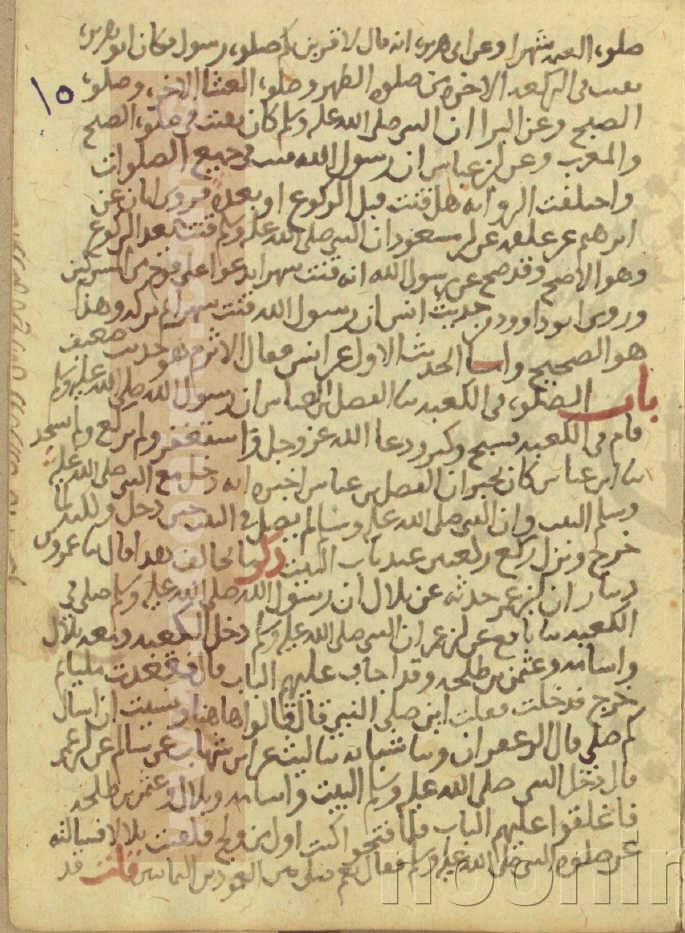 صلوة العتمة شهرا وعن ابى هريرة انه قال لاقربن بكم صلوة رسول فكان ابو هريرة
يقنت فى الركعة الاخرة من صلوة الظهر وصلوة العشا الاخرة وصلوة
١٥
الصبح وعن البرا ان النبى صلى الله عليه وسلم كان يقنت فى صلوة الصبح
والمغرب وعن ابن عباس ان رسول الله قنت فى جميع الصلوات
واختلفت الرواية هل قنت قبل الركوع او بعده فروى ابان عن
ابرهيم عن علقمة عن ابن مسعود ان النبى صلى الله عليه وسلم قنت بعد الركوع
وهو الاصح وقد صح عن رسول الله انه قنت شهرا يدعوا على قوم من المشركين
وروى ابو داوود من حديث انس ان رسول الله قنت شهرا ثم تركه وهذا
هو الصحيح واما الحديث الاول عن انس فقال الاثرم هو حديث ضعيف
باب الصلوة فى الكعبة سا الفضل بن العباس ان رسول الله صلى الله عليه وسلم
قام فى الكعبة فسبح وكبر ودعا الله عز وجل واستغفر ولم يركع ولم يسجد
سا ابن عباس كان يخبر ان الفضل بن عباس اخبره انه دخل مع النبى صلى الله عليه
وسلم البيت وان النبى صلى الله عليه وسلم لم يصل فى البيت حين دخل ولكنه لما
خرج ونزل ركع ركعتين عند باب البيت ذكر ما يخالف هذا قال سا عمرو بن
دينار ان ابن عمر حدثه عن بلال ان رسول الله صلى الله عليه وسلم صلى فى
الكعبة سا نافع عن ابن عمر ان النبى صلى الله عليه وسلم دخل الكعبة ومعه بلال
واسامة وعثمن بن طلحة وقد اجاف عليهم الباب قال فقعدت مليا ثم
خرج فدخلت فقلت اين صلى النبى قال قالوا هاهنا ونسيت ان اسال
كم صلى قال الزعفران وسا شبابه سا ليث عن ابن شهاب عن سالم عن ابن عمر
قال دخل النبى صلى الله عليه وسلم البيت واسامة وبلال وعثمن بن طلحة
فاغلقوا عليهم الباب فلما فتحوا كنت اول من ولج فلقيت بلالا فسالته
عن صلوة النبى صلى الله عليه وسلم فقال نعم صلى بين العمودين اليمانيين قلت قد
noorlin